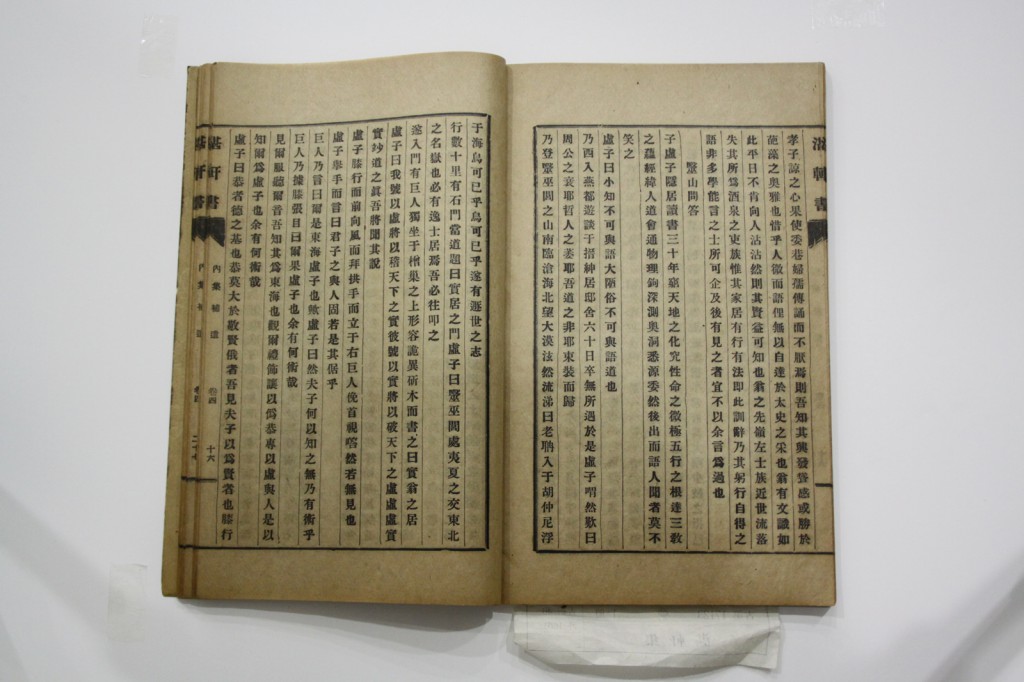 湛軒書
孝子諒之心果使委巷婦孺傳誦而不厭焉則吾知其興發登感或勝於
葩藻之奧雅也惜乎人微而語俚無以自達於太史之采也翁有文識如
此平日不肯向人沾沾然則其賢益可知也翁之先嶺左士族近世流落
失其所爲酒泉之吏族惟其家居有行有法卽此訓辭乃其躬行自得之
語非多學能言之士所可企及後有見之者宜不以余言爲過也
毉山問答
子虛子隱居讀書三十年窮天地之化究性命之微極五行之根達三敎
之蘊經緯人道會通物理鉤深測奧洞悉源委然後出而語人聞者莫不
笑之
虛子曰小知不可與語大陋俗不可與語道也
乃西入燕都遊談于搢紳居邸舍六十日卒無所遇於是虛子喟然歎曰
周公之衰耶哲人之萎耶吾道之非耶束裝而歸
乃登毉巫閭之山南臨滄海北望大漠泫然流涕曰老聃入于胡仲尼浮
于海烏可已乎烏可已乎遂有遯世之志
行數十里有石門當道題曰實居之門虛子曰毉巫閭處夷夏之交東北
之名嶽也必有逸士居焉吾必往叩之
遂入門有巨人獨坐于橧巢之上形容詭異斫木而書之曰實翁之居
虛子曰我號以虛將以稽天下之實彼號以實將以破天下之虛虛虛實
實妙道之眞吾將聞其說
虛子膝行而前向風而拜拱手而立于右巨人俛首視嗒然若無見也
虛子擧手而言曰君子之與人固若是其倨乎
巨人乃言曰爾是東海虛子也歟虛子曰然夫子何以知之無乃有術乎
巨人乃據膝張目曰爾果虛子也余有何術哉
見爾服聽爾音吾知其爲東海也觀爾禮飾讓以僞恭專以虛與人是以
知爾爲虛子也余有何術哉
虛子曰恭者德之基也恭莫大於敬賢俄者吾見夫子以爲賢者也膝行
湛軒書
內集補遺
卷四
十六
湛軒書
內集補遺
卷四